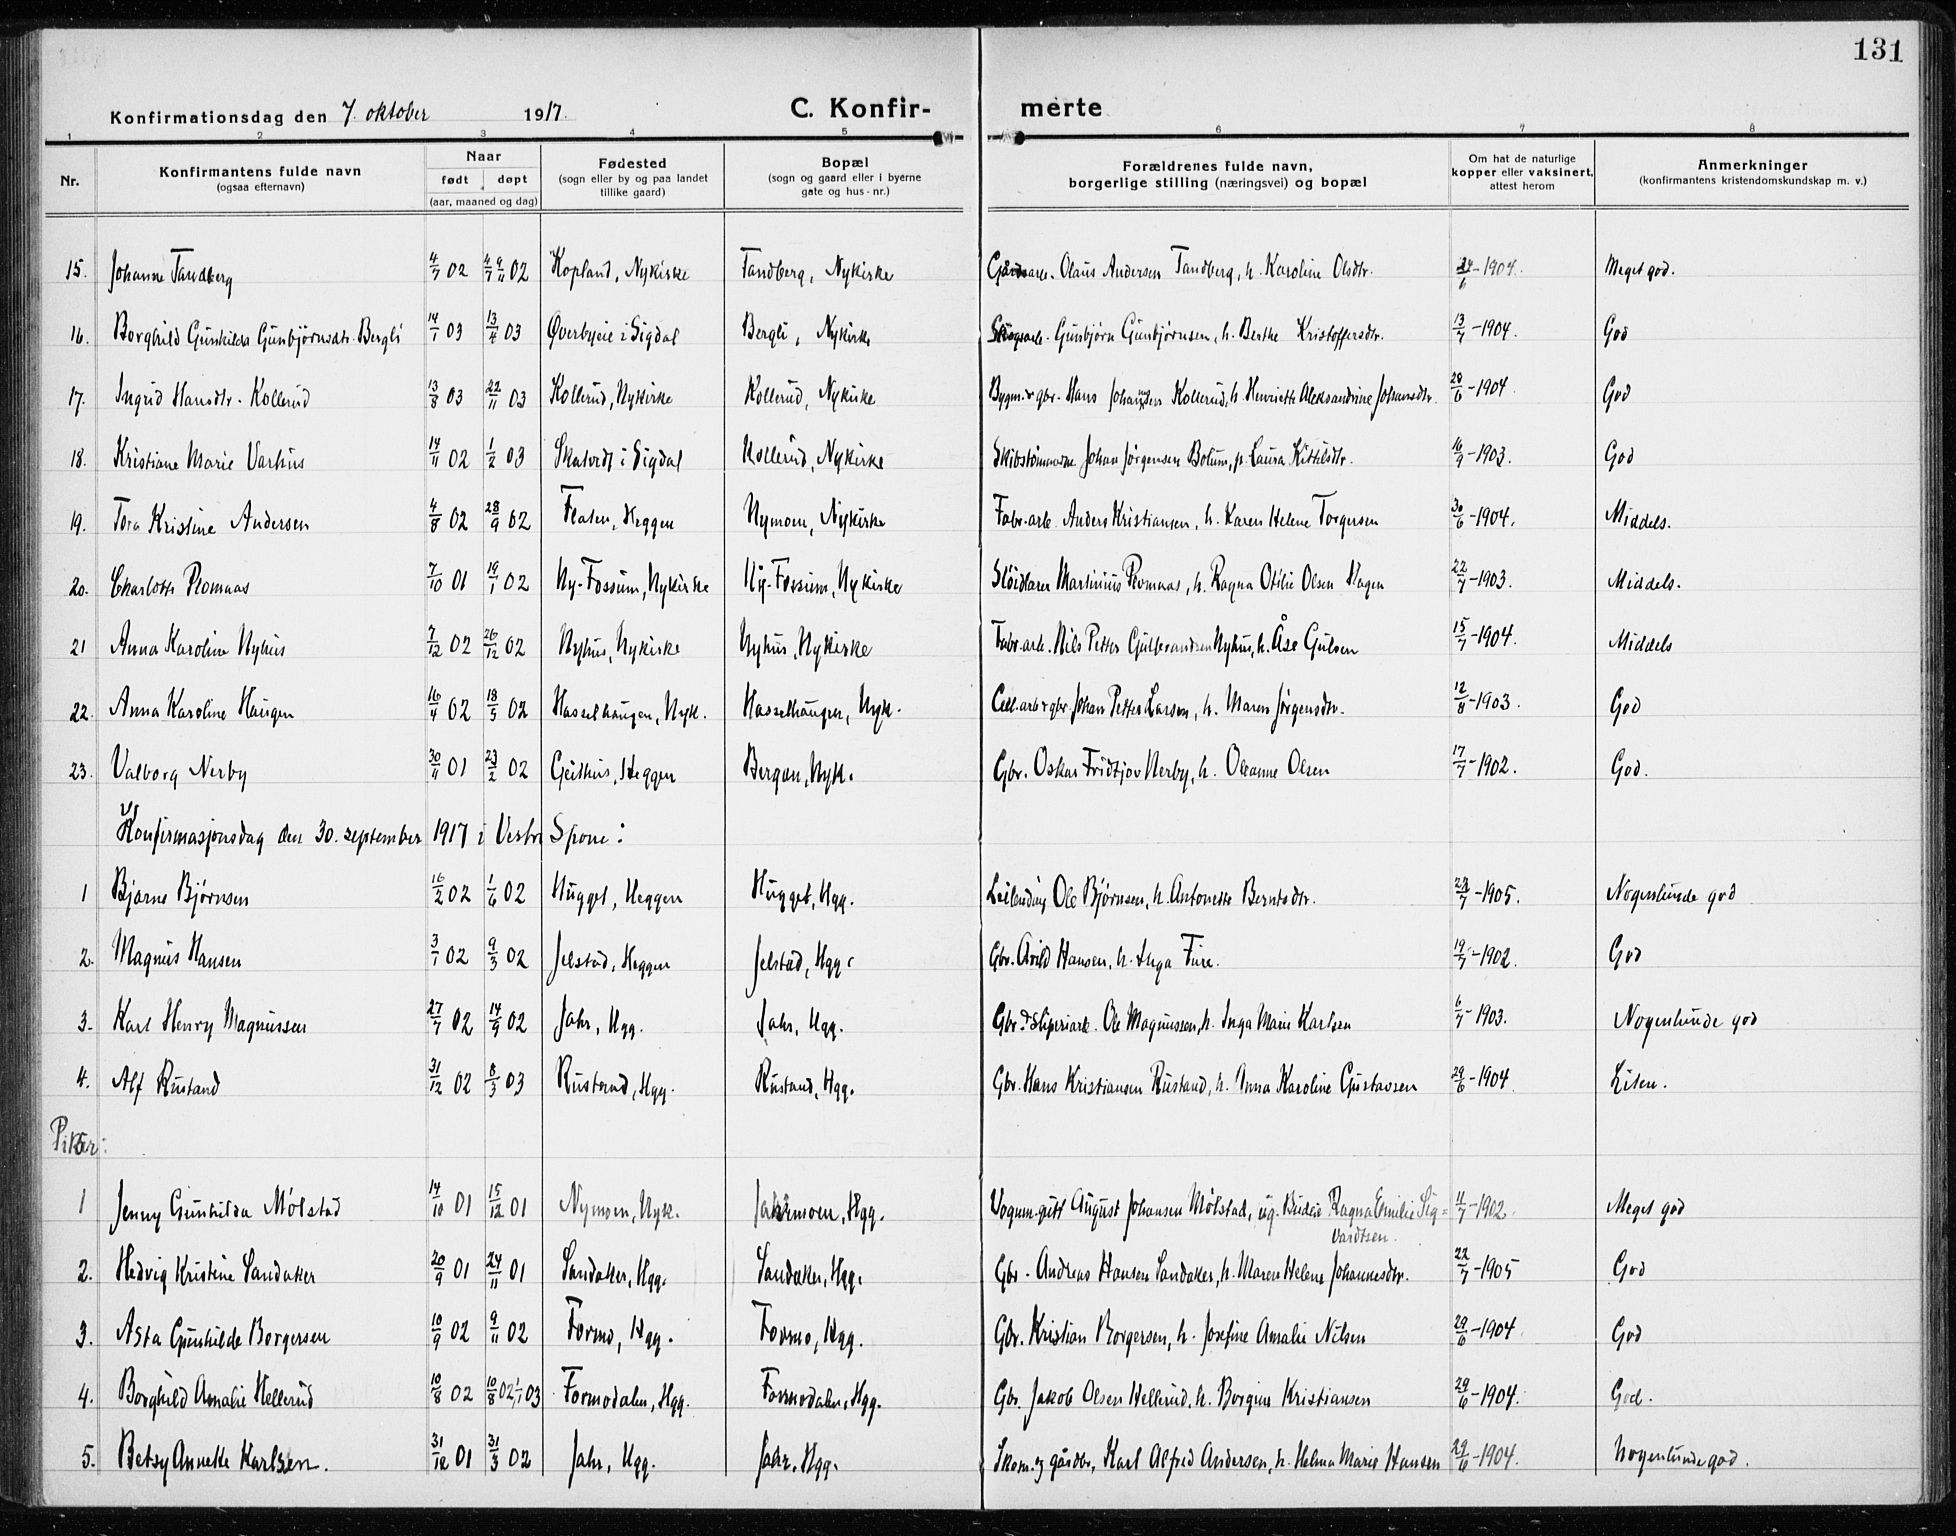 131
Konfirmationsdag den 7. oktober 1917. C. Konfir- merte
1 2 3 4 5 6 7 8
Nr. Konfirmantens fulde navn (ogsaa efternavn) Naar født døpt (aar, maaned og dag) Fødested (sogn eller by og paa landet tillike gaard) Bopæl (sogn og gaard eller i byerne gate og hus-nr.) Forældrenes fulde navn, borgerlige stilling (næringsvei) og bopæl Om hat de naturlige kopper eller vaksinert, attest herom Anmerkninger (konfirmantens kristendomskundskap m. v.)
15. Johanne Tandberg 4/7 02 4/7 9/11 02 Kopland, Nykirke Tandberg, Nykirke Gårdsarb. Olaus Andersen Tandberg, h. Karoline Olsdtr. 24/6-1904. Meget god.
16. Borghild Gunhilda Gunbjørnsdtr. Bergli 14/1 03 13/4 03 Øverbyeie i Sigdal Bergli, Nykirke Skogsarb. Gunbjørn Gunbjørnsen, h. Berthe Kristoffersdtr. 13/7-1904. God
17. Ingrid Hansdtr. Kollerud 13/8 03 22/11 03 Kollerud, Nykirke Kollerud, Nykirke Bygm. & gbr. Hans Johannsen Kollerud, h. Henriette Aleksandrine Johansdtr. 28/6-1904. God
18. Kristiane Marie Varhus 14/11 02 1/2 03 Skatvedt i Sigdal Kollerud, Nykirke Skibstømmerm. Johan Jørgensen Bolum, p. Laura Kittilsdtr. 16/9-1903. God
19. Tora Kristine Andersen 4/8 02 28/9 02 Flaten, Heggen Nymoen, Nykirke Fabr.arb. Anders Kristiansen, h. Karen Helene Torgersen 30/6-1904. Middels.
20. Charlotte Plomaas 7/10 01 19/1 02 Ny-Fossum, Nykirke Ny-Fossum, Nykirke Sløidlærer Martinius Plomaas, h. Ragna Otilie Olsen Hagen 22/7-1903. Middels.
21 Anna Karoline Nyhus 7/12 02 26/12 02 Nyhus, Nykirke Nyhus, Nykirke Fabr.arb. Nils Petter Gulbrandsen Nyhus, h. Åse Gulsen 15/7-1904. Middels
22. Anna Karoline Haugen 16/4 02 18/5 02 Hasselhaugen, Nyk. Hasselhaugen, Nyk. Cell.arb & gbr. Johan Petter Larsen, h. Maren Jørgensdtr. 12/8-1903. God
23. Valborg Nerby 30/11 01 23/2 02 Geithus, Heggen Bergan, Nyk. Gbr. Oskar Fridtjov Nerby, h. Oleanne Olsen 17/7-1902. God.
Konfirmasjonsdag den 30. september 1917 i Vestre Spone:
1 Bjarne Bjørnsen 16/2 02 1/6 02 Hugget, Heggen Hugget, Hgg. Leilending Ole Bjørnsen, h. Antonette Berntsdtr. 24/7-1905. Nogenlunde god
2. Magnus Hansen 3/1 02 9/3 02 Jelstad, Heggen Jelstad, Hgg. Gbr. Arild Hansen, h. Inga Fure. 19/7-1902. God
3. Karl Henry Magnussen 27/7 02 14/9 02 Jahr, Hgg. Jahr, Hgg. Gbr. & sliperiarb. Ole Magnussen, h. Inga Marie Karlsen 6/7-1903. Nogenlunde god
4. Alf Rustand 31/12 02 8/3 03 Rustand, Hgg. Rustand, Hgg. Gbr. Hans Kristiansen Rustand, h. Anna Karoline Gustavsen 29/6-1904. Liten.
Piker:
1 Jenny Gunhilda Mølstad 14/10 01 15/12 01 Nymoen, Nyk. Jahrmoen, Hgg. Vognm.gutt August Johansen Mølstad, ug. Budeie Ragna Emilie Sig=
vardtsen. 11/7-1902. Meget god
2. Hedvig Kristine Sandaker 20/9 01 24/11 01 Sandaker, Hgg. Sandaker, Hgg. Gbr. Andreas Hansen Sandaker, h. Maren Helene Johannesdtr. 22/7-1905 God
3. Asta Gunhilde Borgersen 10/9 02 9/11 02 Formo, Hgg. Formo, Hgg. Gbr. Kristian Borgersen, h. Josefine Amalie Nilsen 29/6-1904. God
4. Borghild Amalie Hellerud 10/8 02 10/8 02, 1/1 03 Formodalen, Hgg. Formodalen, Hgg. Gbr. Jakob Olsen Hellerud, h. Borgine Kristiansen 29/6-1904. God.
5. Betsy Annette Karlsen. 31/12 01 31/3 02 Jahr, Hgg. Jahr, Hgg. Skom. og gårdbr. Karl Alfred Andersen, h. Helma Marie Hansen 29/6-1904. Nogenlunde god.